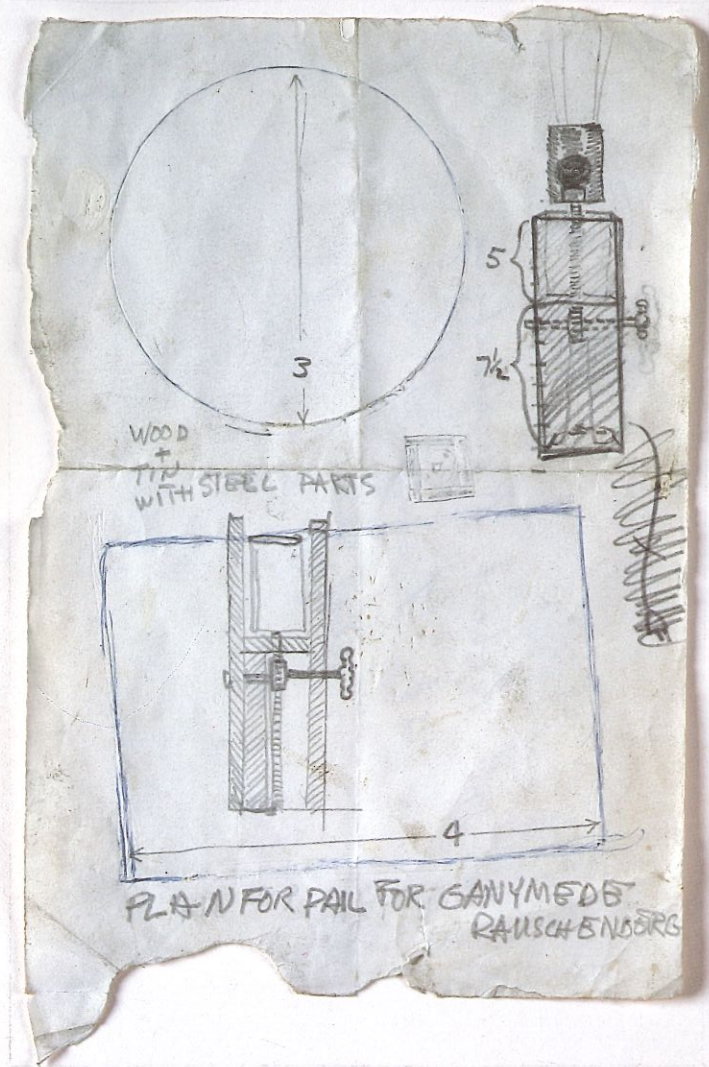 3
5
7½
WOOD
+
TIN
WITH STEEL PARTS
4
PLAN FOR PAIL FOR GANYMEDE
RAUSCHENBERG